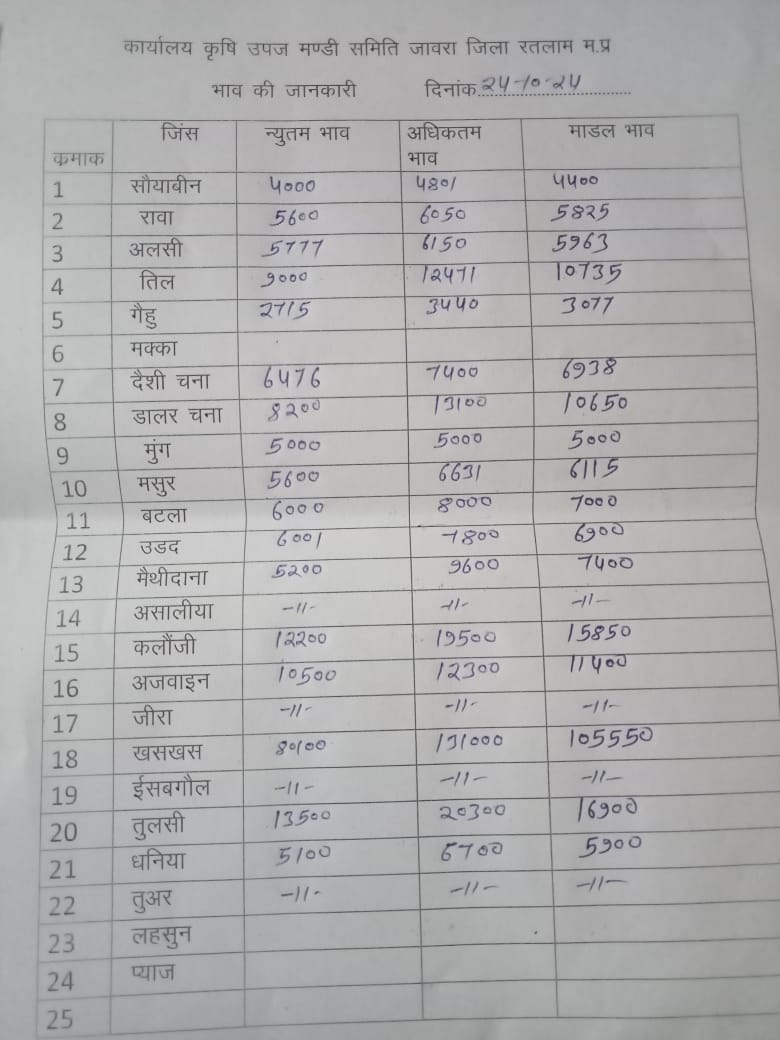 कार्यालय कृषि उपज मण्डी समिति जावरा जिला रतलाम म.प्र
भाव की जानकारी दिनांक 24-10-24
क्रमाक जिंस न्युतम भाव अधिकतम भाव माडल भाव
1 सौयाबीन 4000 4801 4400
2 रावा 5600 6050 5825
3 अलसी 5777 6150 5963
4 तिल 9000 12471 10735
5 गैहु 2715 3440 3077
6 मक्का
7 दैशी चना 6476 7400 6938
8 डालर चना 8200 13100 10650
9 मुंग 5000 5000 5000
10 मसुर 5600 6631 6115
11 बटला 6000 8000 7000
12 उडद 6001 7800 6900
13 मैथीदाना 5200 9600 7400
14 असालीया -11- -11- -11-
15 कलौंजी 12200 19500 15850
16 अजवाइन 10500 12300 11400
17 जीरा -11- -11- -11-
18 खसखस 80100 131000 105550
19 ईसबगौल -11- -11- -11-
20 तुलसी 13500 20300 16900
21 धनिया 5100 6700 5900
22 तुअर -11- -11- -11-
23 लहसुन
24 प्याज
25